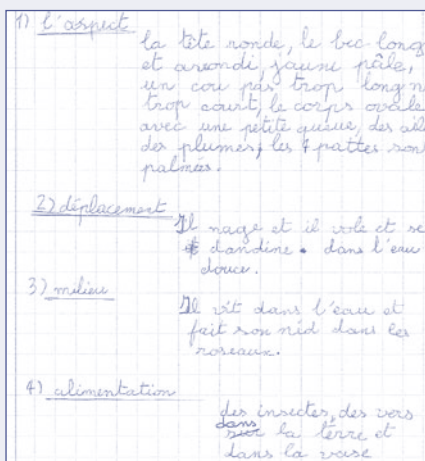 1) l'aspect
la tête ronde, le bec long
et arrondi, jaune pâle,
un cou pas trop long n
trop court, le corps ovale
avec une petite queue, des ail
des plumes; les 4 pattes sont
palmées.
2) déplacement
Il nage et il vole et se
dandine. dans l'eau
douce.
3) milieu
Il vit dans l'eau et
fait son nid dans les
roseaux.
4) alimentation
des insectes, des vers
dans
sur la terre et
dans la vase